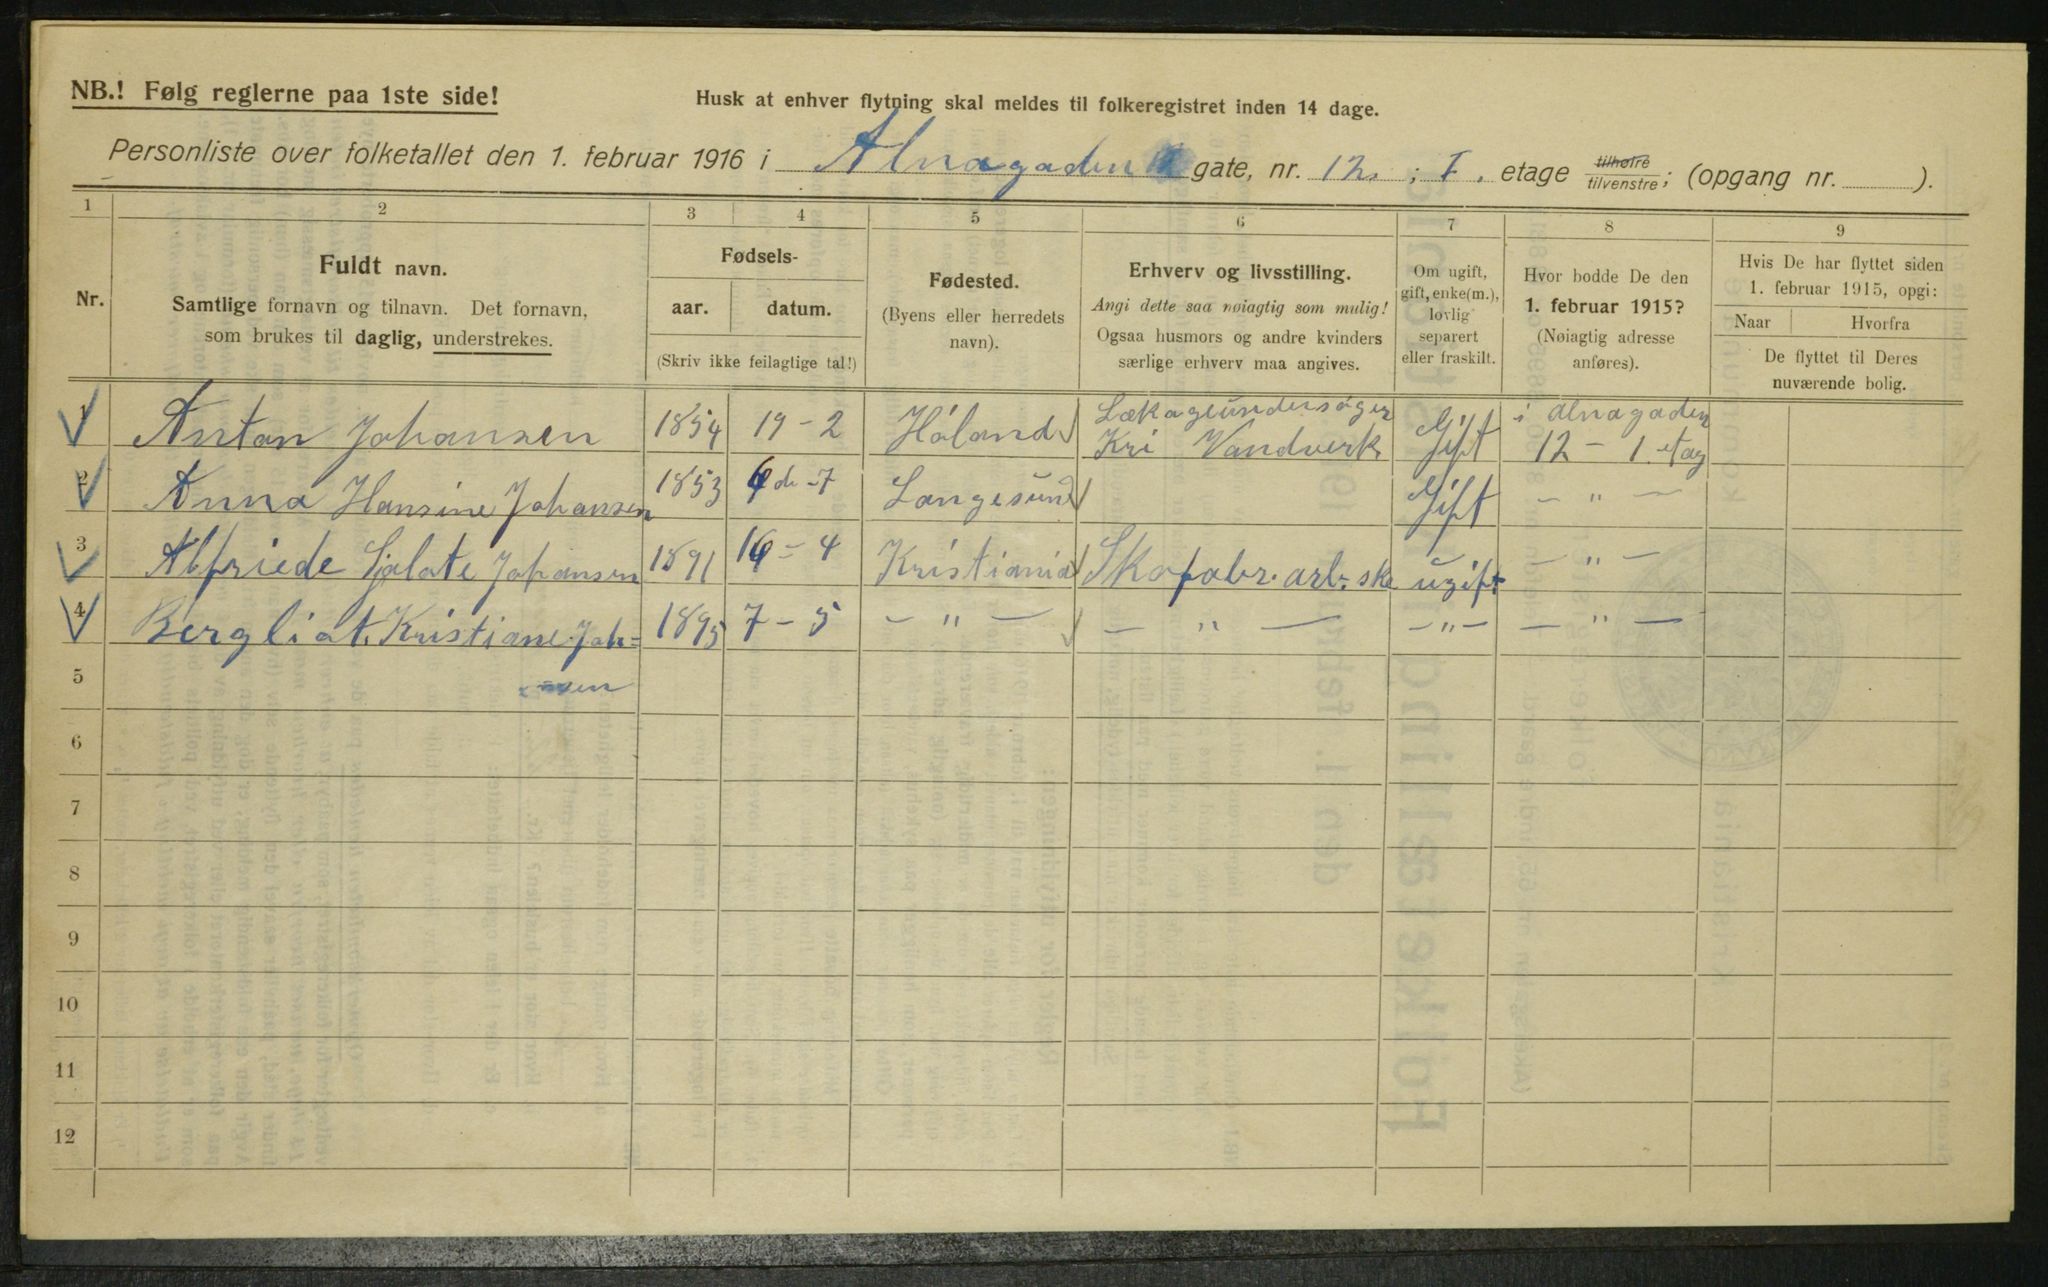 NB.! Følg reglerne paa 1ste side!
Husk at enhver flytning skal meldes til folkeregistret inden 14 dage.
Personliste over folketallet den 1. februar 1916 i Alnagaden gate, nr. 12. ; I. etage tilhøire tilvenstre; (opgang nr. ).
1 2 3 4 5 6 7 8 9
Nr.
Fuldt navn.
Samtlige fornavn og tilnavn. Det fornavn,
som brukes til daglig, understrekes.
Fødsels-
aar. datum.
(Skriv ikke feilagtige tal!)
Fødested.
(Byens eller herredets
navn).
Erhverv og livsstilling.
Angi dette saa nøiagtig som mulig!
Ogsaa husmors og andre kvinders
særlige erhverv maa angives.
Om ugift,
gift, enke(m.),
lovlig
separert
eller fraskilt.
Hvor bodde De den
1. februar 1915?
(Nøiagtig adresse
anføres).
Hvis De har flyttet siden
1. februar 1915, opgi:
Naar Hvorfra
De flyttet til Deres
nuværende bolig.
1 Anton Johansen 1854 19 - 2 Höland Lækageundersøger Kri Vandverk Gift i Alnagaden 12 - 1. etag
2 Anna Hansine Johansen 1853 de - 7 Langesund Gift - " -
3 Alfriede Johansen 1891 - 4 Kristiania Skofabr. arb. ske ugift - " -
4 Bergliot Kristiane Joh= 1895 7 - 5 - " - - " - - " - - " -
5 ansen
6
7
8
9
10
11
12